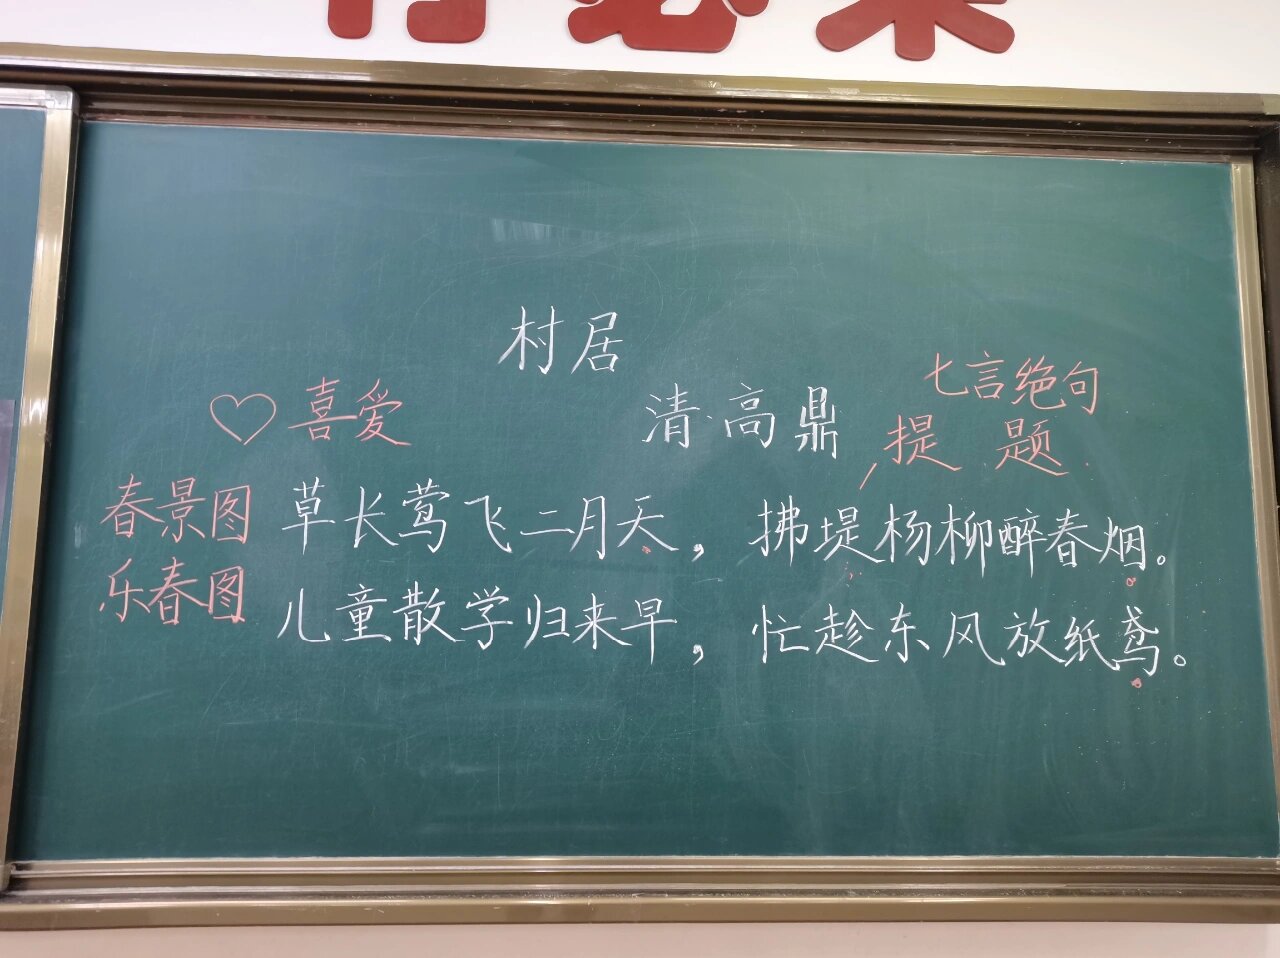 村居
清·高鼎
七言绝句
♡喜爱
提 题
春景图
草长莺飞二月天，拂堤杨柳醉春烟。
乐春图
儿童散学归来早，忙趁东风放纸鸢。